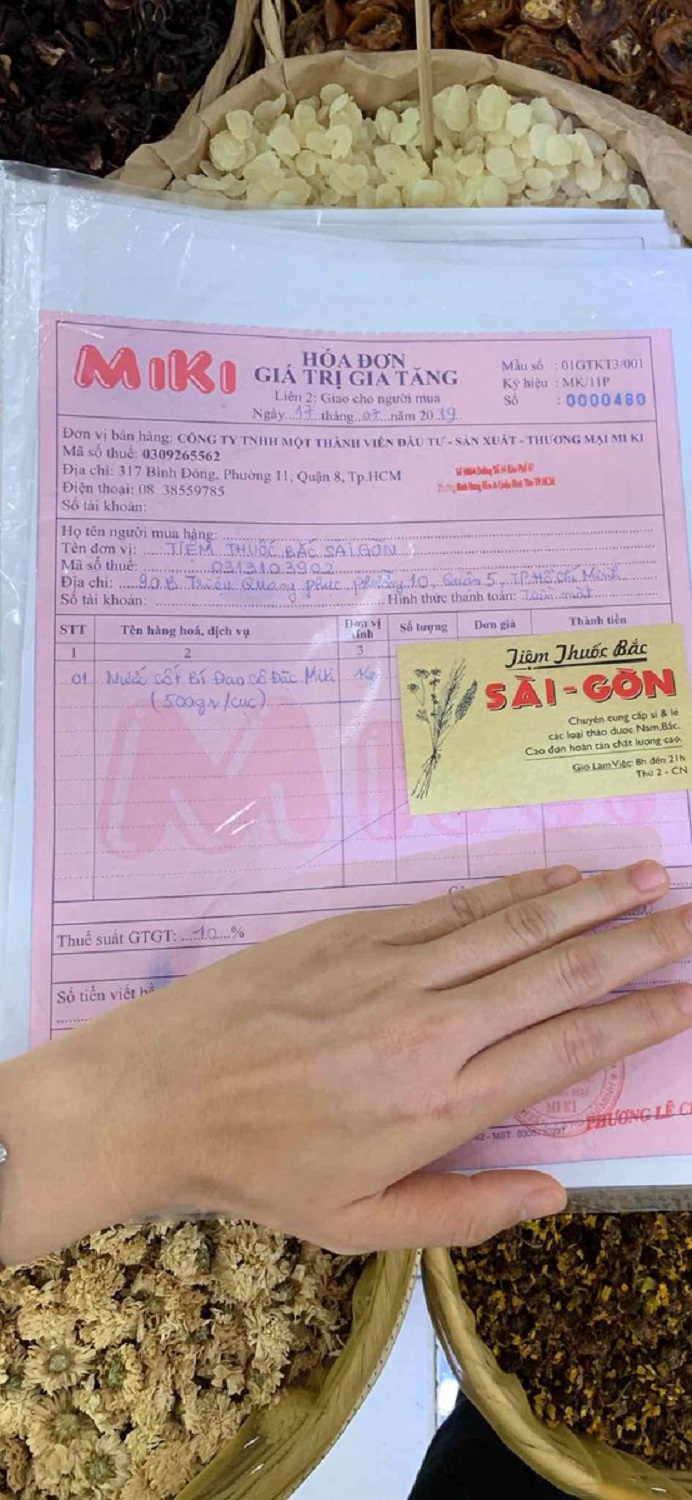 MIKI
HÓA ĐƠN
GIÁ TRỊ GIA TĂNG
Liên 2: Giao cho người mua
Ngày...17...tháng...07...năm 2019...
Mẫu số : 01GTKT3/001
Ký hiệu : MK/11P
Số : 0000480
Đơn vị bán hàng: CÔNG TY TNHH MỘT THÀNH VIÊN ĐẦU TƯ - SẢN XUẤT - THƯƠNG MẠI MI KI
Mã số thuế: 0309265562
Địa chỉ: 317 Bình Đông, Phường 11, Quận 8, Tp.HCM
Điện thoại: 08 38559785
Số tài khoản:
Họ tên người mua hàng:
Tên đơn vị: TIỆM THUỐC BẮC SÀI GÒN
Mã số thuế: 0313103902
Địa chỉ: 90B Triệu Quang Phục, phường 10, Quận 5, TP. Hồ Chí Minh
Số tài khoản: Hình thức thanh toán: Tiền mặt
STT Tên hàng hoá, dịch vụ Đơn vị tính Số lượng Đơn giá Thành tiền
1 2 3
01 Nước cốt Bí Đao Cô Đặc Miki Kg
(500gr/cục)
Tiệm Thuốc Bắc
SÀI-GÒN
Chuyên cung cấp sỉ & lẻ
các loại thảo dược Nam, Bắc.
Cao đơn hoàn tán chất lượng cao.
Giờ Làm Việc: 8h đến 21h
Thứ 2 - CN
Thuế suất GTGT: ...10...%
Số tiền viết
MI KI
PHƯƠNG LÊ